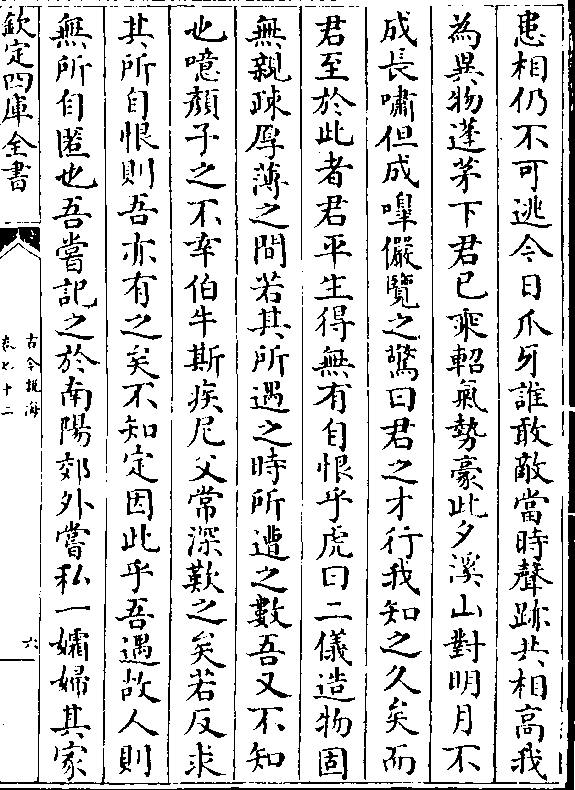 患相仍不可逃今日爪牙誰敢敵當時聲跡共相高我
為異物蓬茅下君已乘軺氣勢豪此夕溪山對明月不
成長嘯但成嘷儼覽之驚曰君之才行我知之久矣而
君至於此者君平生得無有自恨乎虎曰二儀造物固
無親疎厚薄之間若其所遇之時所遭之數吾又不知
也噫顔子之不幸伯牛斯疾尼父常深歎之矣若反求
其所自恨則吾亦有之矣不知定因此乎吾遇故人則
無所自匿也吾嘗記之於南陽郊外嘗私一孀婦其家
欽定四庫全書
古今說海
卷七十二
六